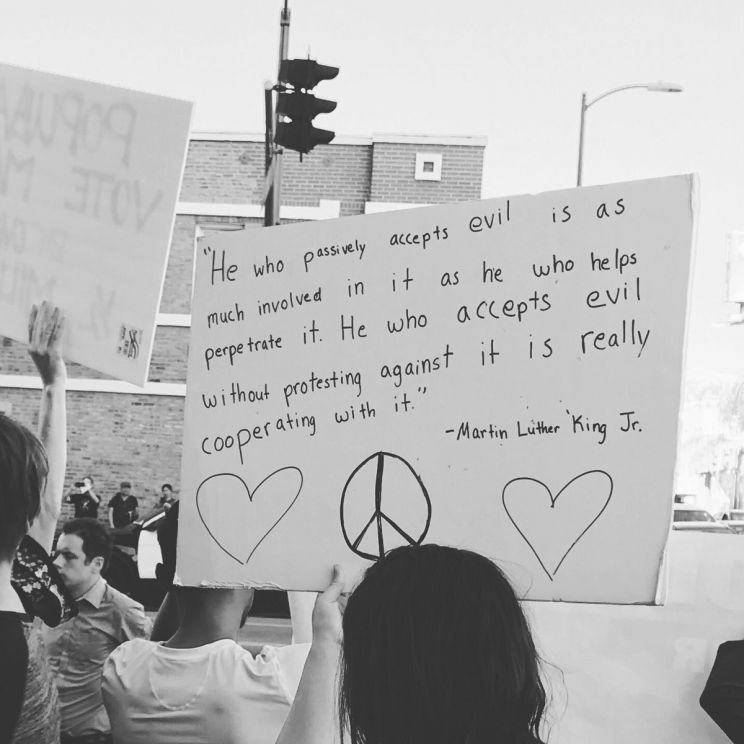 POPULA
VOTE
"He who passively accepts evil is as
much involved in it as he who helps
perpetrate it. He who accepts evil
without protesting against it is really
cooperating with it."
-Martin Luther King Jr.